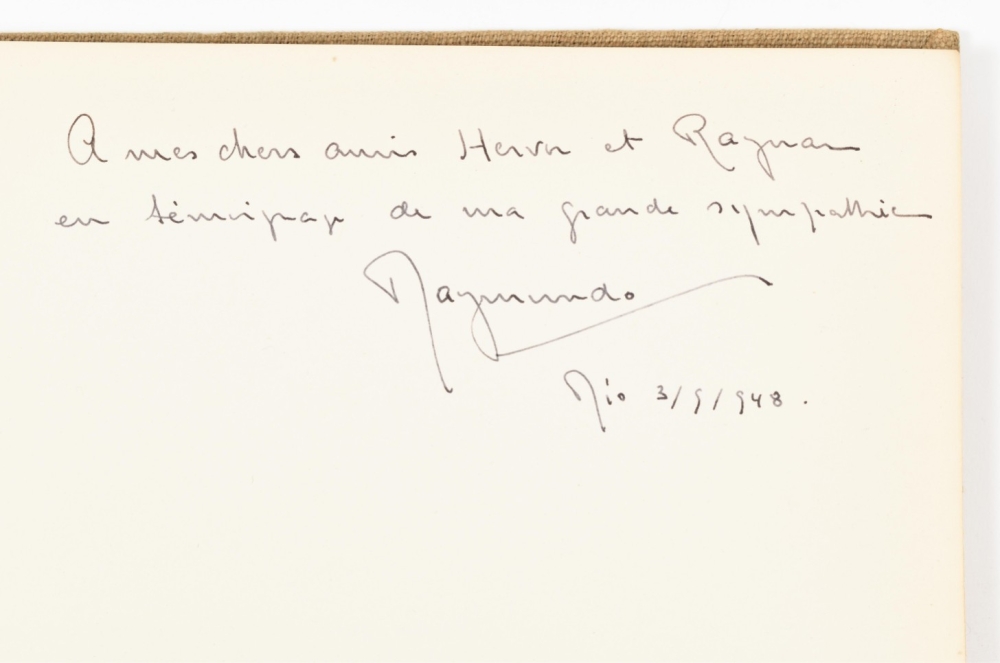 A mes chers amis Hervor et Ragnar
en témoignage de ma grande sympathie
Raymundo
Rio 3/9/948.